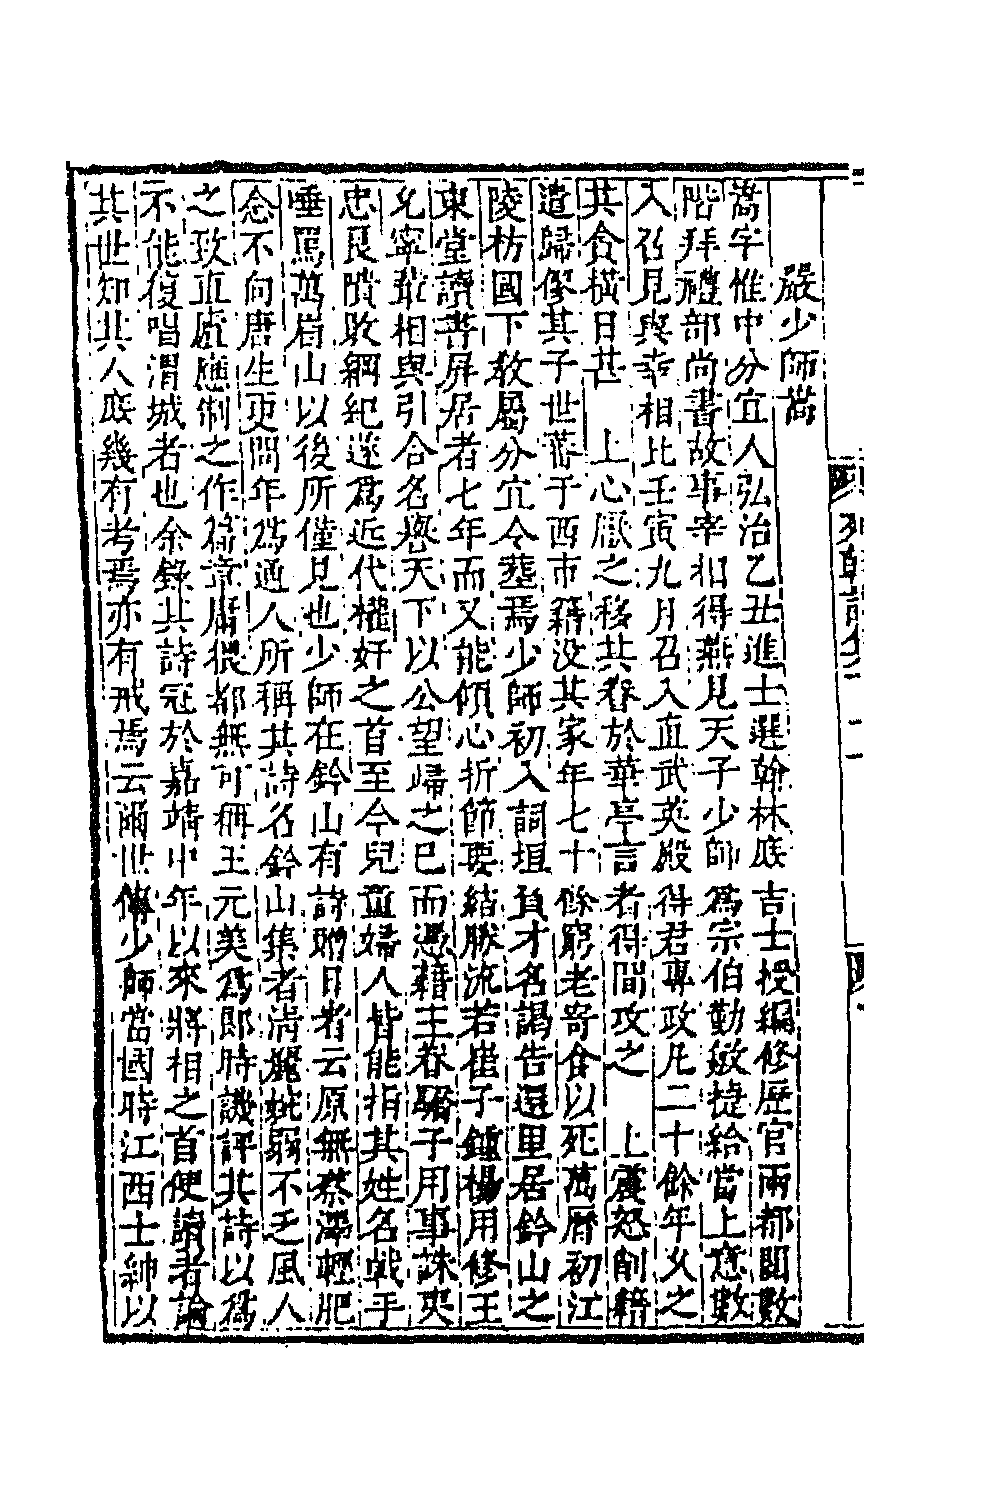 嚴少師嵩
嵩字惟中分宜人弘治乙丑進士選翰林庶吉士授編修歷官兩都閱數
階拜禮部尚書故事宰相得燕見天子少師為宗伯勤敏捷給當上意數
入召見與幸相比壬寅九月召入直武英殿得君專政凡二十餘年久之
其貪橫日甚 上心厭之移其眷於華亭言者得間攻之 上震怒削籍
遣歸僇其子世蕃于西市籍没其家年七十餘窮老寄食以死萬曆初江
陵枋國下教屬分宜令塟焉少師初入詞垣負才名謁告還里居鈐山之
東堂讀書屏居者七年而又能傾心折節要結勝流若崔子鍾楊用修王
允寧輩相與引合名譽天下以公望歸之已而憑藉主眷驕子用事誅夷
忠良隤敗綱紀遂為近代權奸之首至今兒童婦人皆能指其姓名戟手
唾罵萬眉山以後所僅見也少師在鈐山有詩贈日者云原無蔡澤輕肥
念不向唐生更問年為通人所稱其詩名鈐山集者清麗姚弱不乏風人
之致直廬應制之作篇章庸猥都無可稱王元美為郎時譏評其詩以為
不能復唱渭城者也余錄其詩冠於嘉靖中年以來將相之首使讀者論
其世知其人庶幾有考焉亦有戒焉云爾世傳少師當國時江西士紳以
列朝詩集